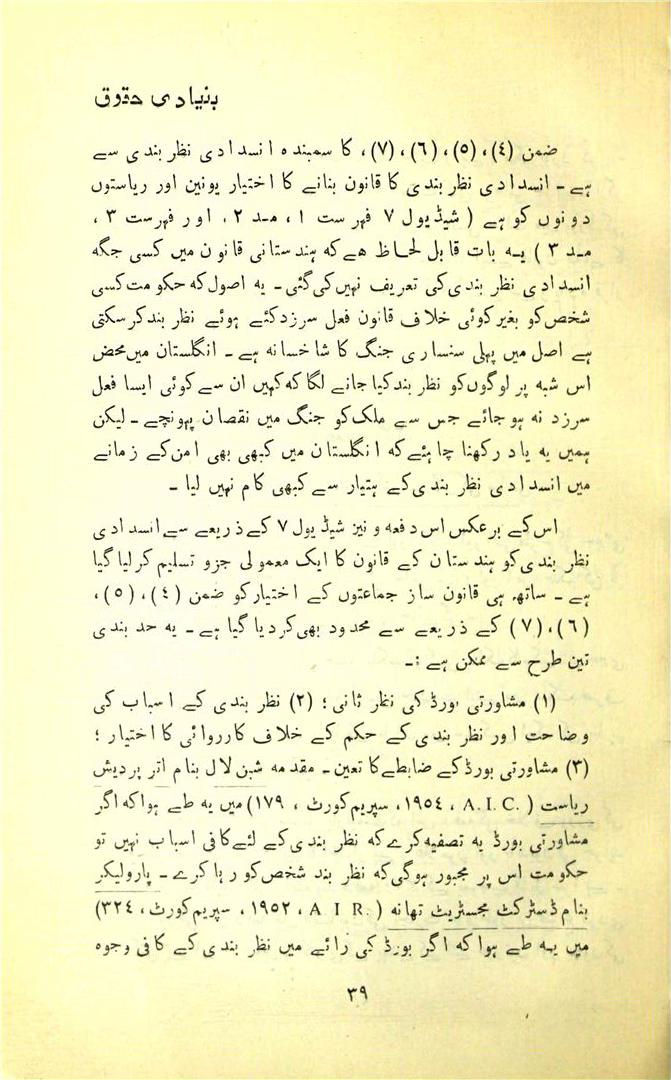 بنیادی حقوق
ضمن (٤)، (٥)، (٦)، (٧)، کا سمبندہ انسدادی نظر بندی سے
ہے ـ انسدادی نظر بندی کا قانون بنانے کا اختیار یونین اور ریاستوں
دونوں کو ہے ( شیڈیول ٧ فہرست ١، مـد ٢، اور فہرست ٣،
مـد ٣ ) یہ بات قابل لحاظ ہے کہ ہندستانی قانون میں کسی جگہ
انسدادی نظر بندی کی تعریف نہیں کی گئی ـ یہ اصول کہ حکومت کسی
شخص کو بغیر کوئی خلاف قانون فعل سرزد کئے ہوئے نظر بند کر سکتی
ہے اصل میں پہلی سنساری جنگ کا شاخسانہ ہے ـ انگلستان میں محض
اس شبہ پر لوگوں کو نظر بند کیا جانے لگا کہ کہیں ان سے کوئی ایسا فعل
سرزد نہ ہو جائے جس سے ملک کو جنگ میں نقصان پہونچے ـ لیکن
ہمیں یہ یاد رکھنا چاہئے کہ انگلستان میں کبھی بھی امن کے زمانے
میں انسدادی نظر بندی کے ہتیار سے کبھی کام نہیں لیا ـ
اس کے برعکس اس دفعہ و نیز شیڈیول ٧ کے ذریعے سے انسدادی
نظر بندی کو ہندستان کے قانون کا ایک معمولی جزو تسلیم کرلیا گیا
ہے ـ ساتھ ہی قانون ساز جماعتوں کے اختیار کو ضمن (٤)، (٥)،
(٦)، (٧) کے ذریعے سے محدود بھی کر دیا گیا ہے ـ یہ حد بندی
تین طرح سے ممکن ہے :ـ
(١) مشاورتی بورڈ کی نظر ثانی ؛ (٢) نظر بندی کے اسباب کی
وضاحت اور نظر بندی کے حکم کے خلاف کارروائی کا اختیار ؛
(٣) مشاورتی بورڈ کے ضابطے کا تعین ـ مقدمہ شبن لال بنام اتر پردیش
ریاست ( A.I.C. ، ١٩٥٤، سپریم کورٹ ، ١٧٩) میں یہ طے ہوا کہ اگر
مشاورتی بورڈ یہ تصفیہ کرے کہ نظر بندی کے لئے کافی اسباب نہیں تو
حکومت اس پر مجبور ہوگی کہ نظر بند شخص کو رہا کرے ـ پارولیکر
بنام ڈسٹرکٹ مجسٹریٹ تھانہ ( A I R. ، ١٩٥٢، سپریم کورٹ، ٣٢٤)
میں یہ طے ہوا کہ اگر بورڈ کی رائے میں نظر بندی کے کافی وجوہ
٣٩